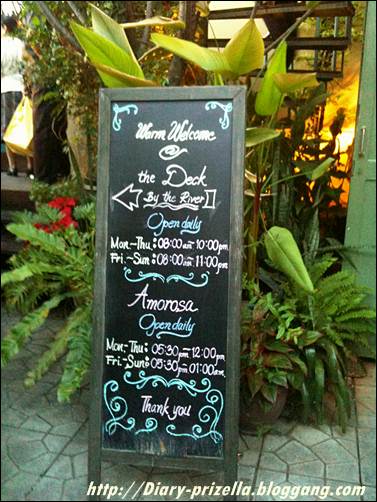 Warm Welcome
@
the Deck
By the River
Open daily
Mon-Thu: 08:00am 10:00pm
Fri-Sun: 08:00am 11:00pm
Amorosa
Open daily
Mon-Thu: 05:30pm 12:00pm
Fri-Sun: 05:30pm 01:00am
Thank you
http://Diary-prizella.bloggang.com